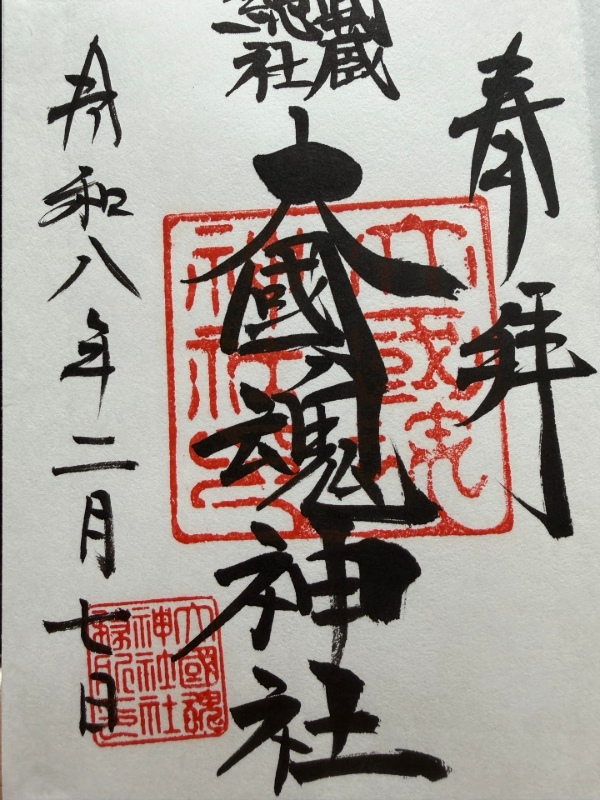 奉拝
武蔵
総社
大國魂神社
令和八年二月七日
大國魂
神社印
大國魂
神社社
務所印